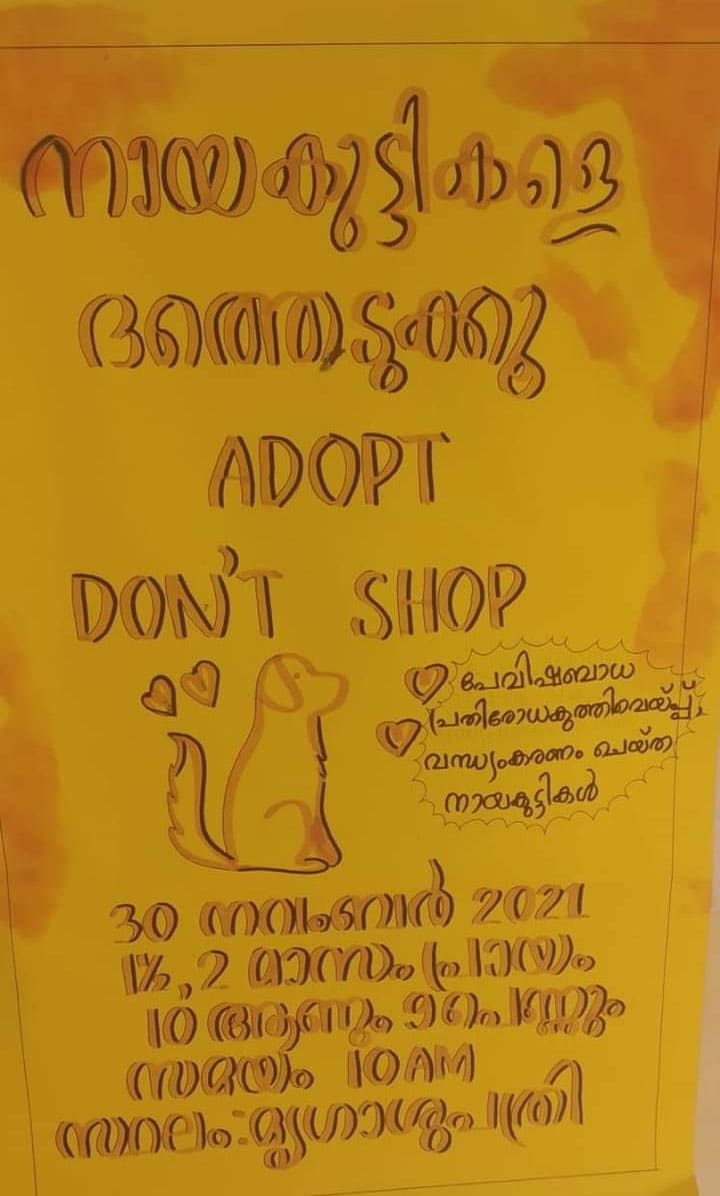 നായകുട്ടികളെ
ദത്തെടുക്കൂ
ADOPT
DON'T SHOP
പേവിഷബാധ
പ്രതിരോധകുത്തിവെയ്പ്പ്,
വന്ധ്യംകരണം ചെയ്ത
നായകുട്ടികൾ
30 നവംബർ 2021
1½, 2 മാസം പ്രായം
10 ആണും 9 പെണ്ണും
സമയം 10 AM
സ്ഥലം: മൃഗാശുപത്രി